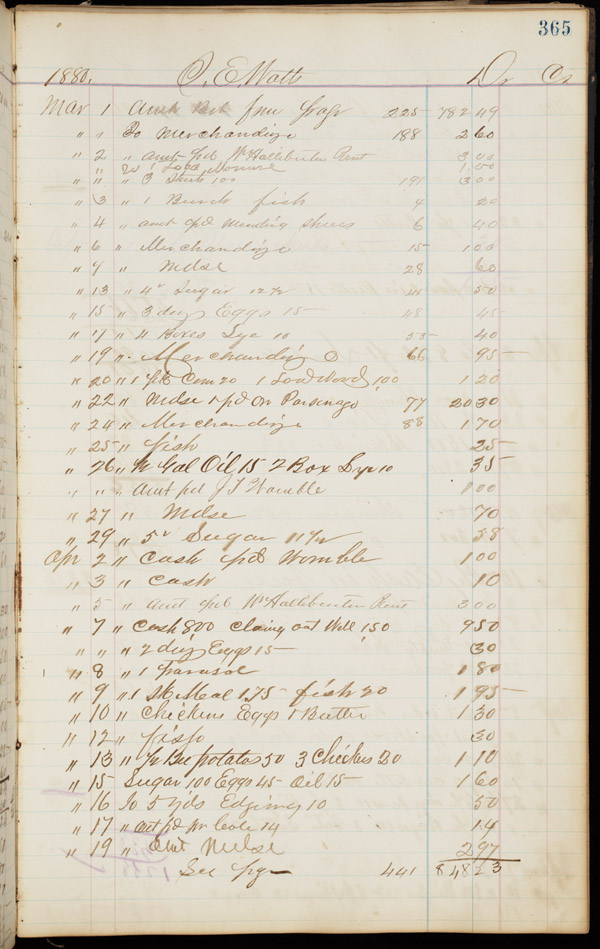 365
1880. C. E. Watts Dr Cr
Mar 1 Amt Brt from page 225 782 49
" " To Merchandize 188 2 60
" 2 " amt pd Wm Halliburton Rent 3 00
" " 1 Load Manure 1 50
" " " 3 100 191 3 00
" 3 " 1 Bunch fish 4 20
" 4 " amt pd Mending Shoes 6 40
" 6 " Merchandize 15 1 00
" 9 " Mdse 28 60
" 13 " 4# Sugar 12½ 50
" 15 " 3 doz Eggs 15 48 45
" 17 " 4 Boxes Lye 10 55 40
" 19 " Merchandize 66 95
" 20 " 1 pk Corn 20 1 Load Wood 100 1 20
" 22 " Mdse & pd on Parsonage 77 20 30
" 24 " Merchandize 88 1 70
" 25 " fish 25
" 26 " Gal Oil 15 2 Box Lye 10 35
" " " Amt pd J T Womble 1 00
" 27 " Mdse 70
" 29 " 5# Sugar 11½ 58
Apr 2 " Cash pd Womble 1 00
" 3 " Cash 10
" 5 " amt pd Wm Halliburton Rent 3 00
" 7 " Cash 800 Cleaing out Well 150 9 50
" " " 2 doz Eggs 15 30
" 8 " 1 Parasol 1 80
" 9 " 1 Sk Meal 1.75 fish 20 1 95
" 10 " Chickens Eggs & Butter 1 30
" 12 " fish 30
" 13 " ½ Bu potatos 50 3 Chickens 20 1 10
" 15 Sugar 100 Eggs 45 Oil 15 1 60
" 16 To 5 yds Edging 10 50
" 17 " amt pd for 14 14
" 19 " Amt Mdse 2 97
See pge 441 848 23